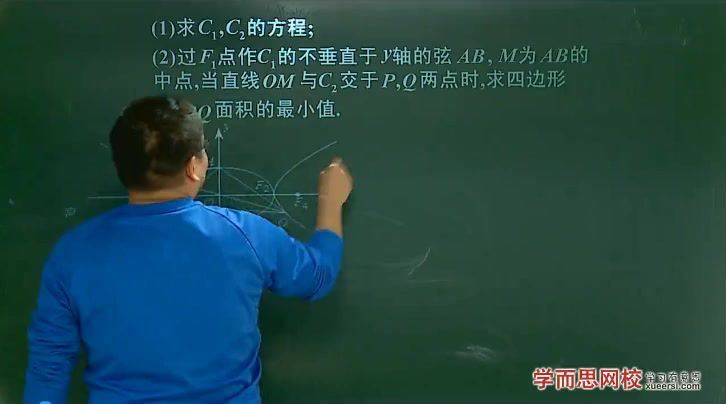 (1)求C₁,C₂的方程;
(2)过F₁点作C₁的不垂直于y轴的弦AB, M为AB的
中点,当直线OM与C₂交于P,Q两点时,求四边形
Q面积的最小值.
F₂
F₄
学而思网校
学习有意思
xueersi.com